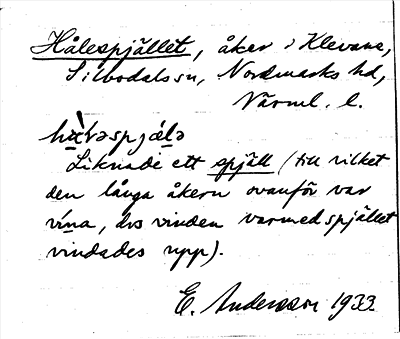 Hålespjället, åker i Klevane,
Silbodals sn, Nordmarks hd,
Värml. l.
Liknade ett spjäll (till vilket
den långa åkern ovanför var
vína, dvs vinden varmed spjället
vindades upp).
E. Andersson 1933